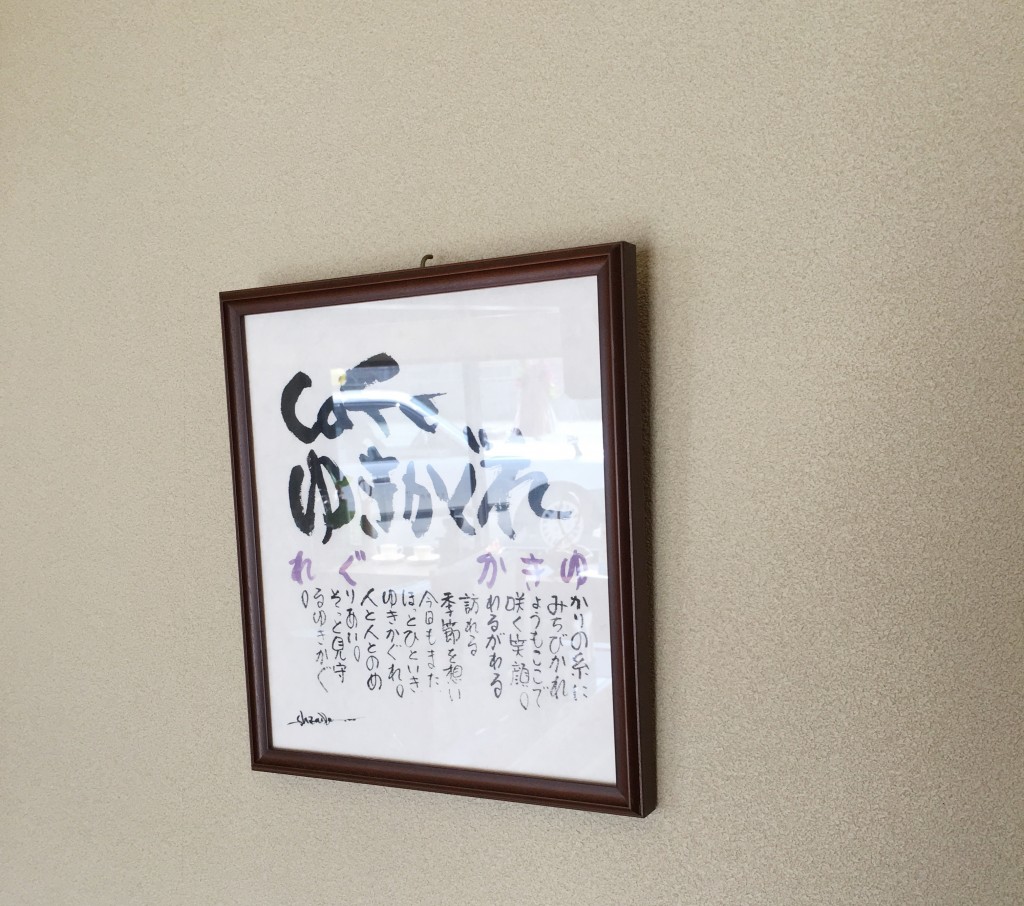 cafe
ゆきかぐれ
ゆかりの糸に
みちびかれ
きょうもここで
咲く笑顔。
かわるがわる
訪れる
季節を想い
今日もまた、
ほっとひといき
ゆきかぐれ。
人と人とのめ
ぐりあい。
そっと見守
るゆきかぐ
れ。